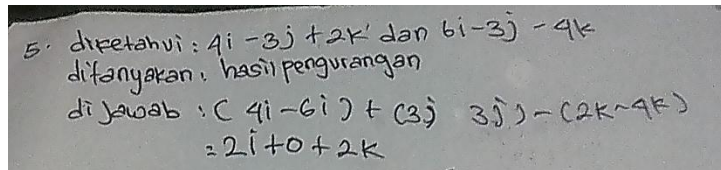 5. diketahui : 4i - 3j + 2k dan 6i - 3j - 4k
ditanyakan : hasil pengurangan
di jawab : ( 4i - 6i ) + (3j 3j) - (2k - 4k)
= 2i + 0 + 2k